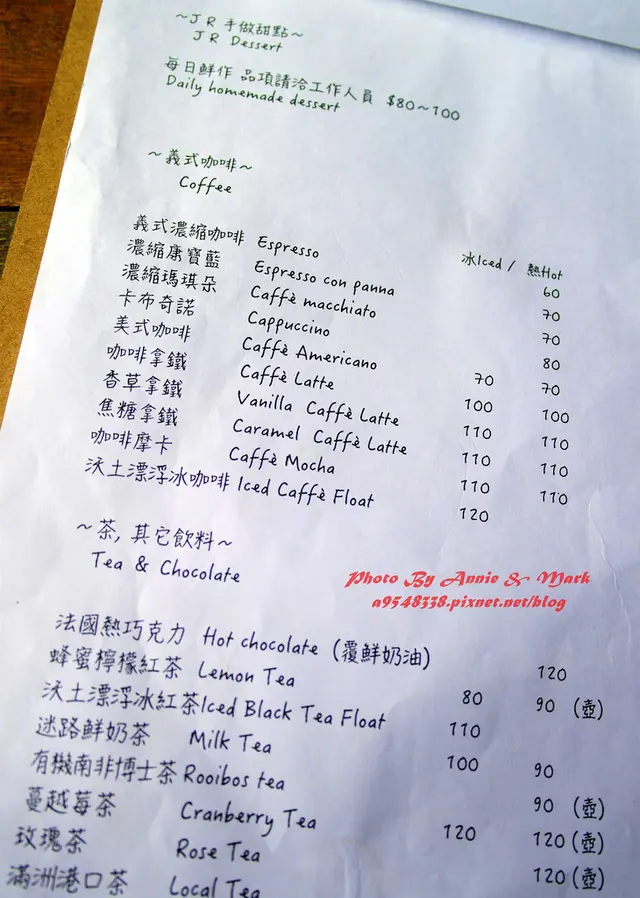 ~JR 手做甜點~
JR Dessert
每日鮮作 品項請洽工作人員 $80~100
Daily homemade dessert
~義式咖啡~
Coffee
冰Iced / 熱Hot
義式濃縮咖啡 Espresso 60
濃縮康寶藍 Espresso con panna 70
濃縮瑪琪朵 Caffè macchiato 70
卡布奇諾 Cappuccino 80
美式咖啡 Caffè Americano 70 70
咖啡拿鐵 Caffè Latte 100 100
香草拿鐵 Vanilla Caffè Latte 110 110
焦糖拿鐵 Caramel Caffè Latte 110 110
咖啡摩卡 Caffè Mocha 110 110
沃土漂浮冰咖啡 Iced Caffè Float 120
~茶, 其它飲料~
Tea & Chocolate
Photo By Annie & Mark
a9548338.pixnet.net/blog
法國熱巧克力 Hot chocolate (覆鮮奶油) 120
蜂蜜檸檬紅茶 Lemon Tea 80 90 (壺)
沃土漂浮冰紅茶 Iced Black Tea Float 110
迷路鮮奶茶 Milk Tea 100 90
有機南非博士茶 Rooibos tea 90 (壺)
蔓越莓茶 Cranberry Tea 120 120 (壺)
玫瑰茶 Rose Tea 120 (壺)
滿洲港口茶 Local Tea